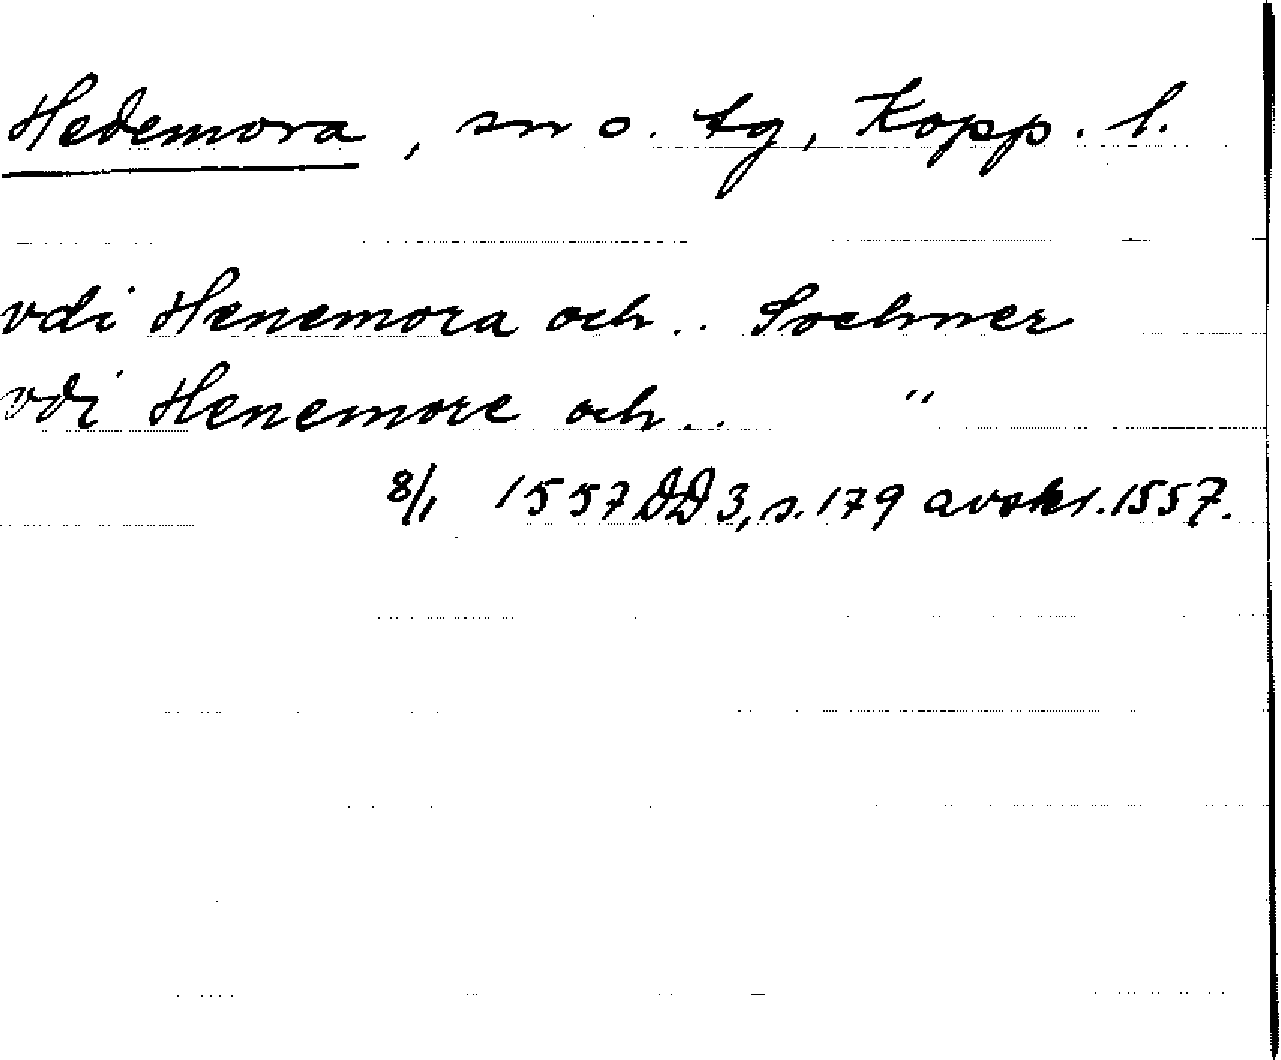 Hedemora, sn o. tg, Kopp. l.
vdi Henemora och .. Sochner
vdi Henemore och .. "
8/1 1557 DD 3, s. 179 avskr. 1557.